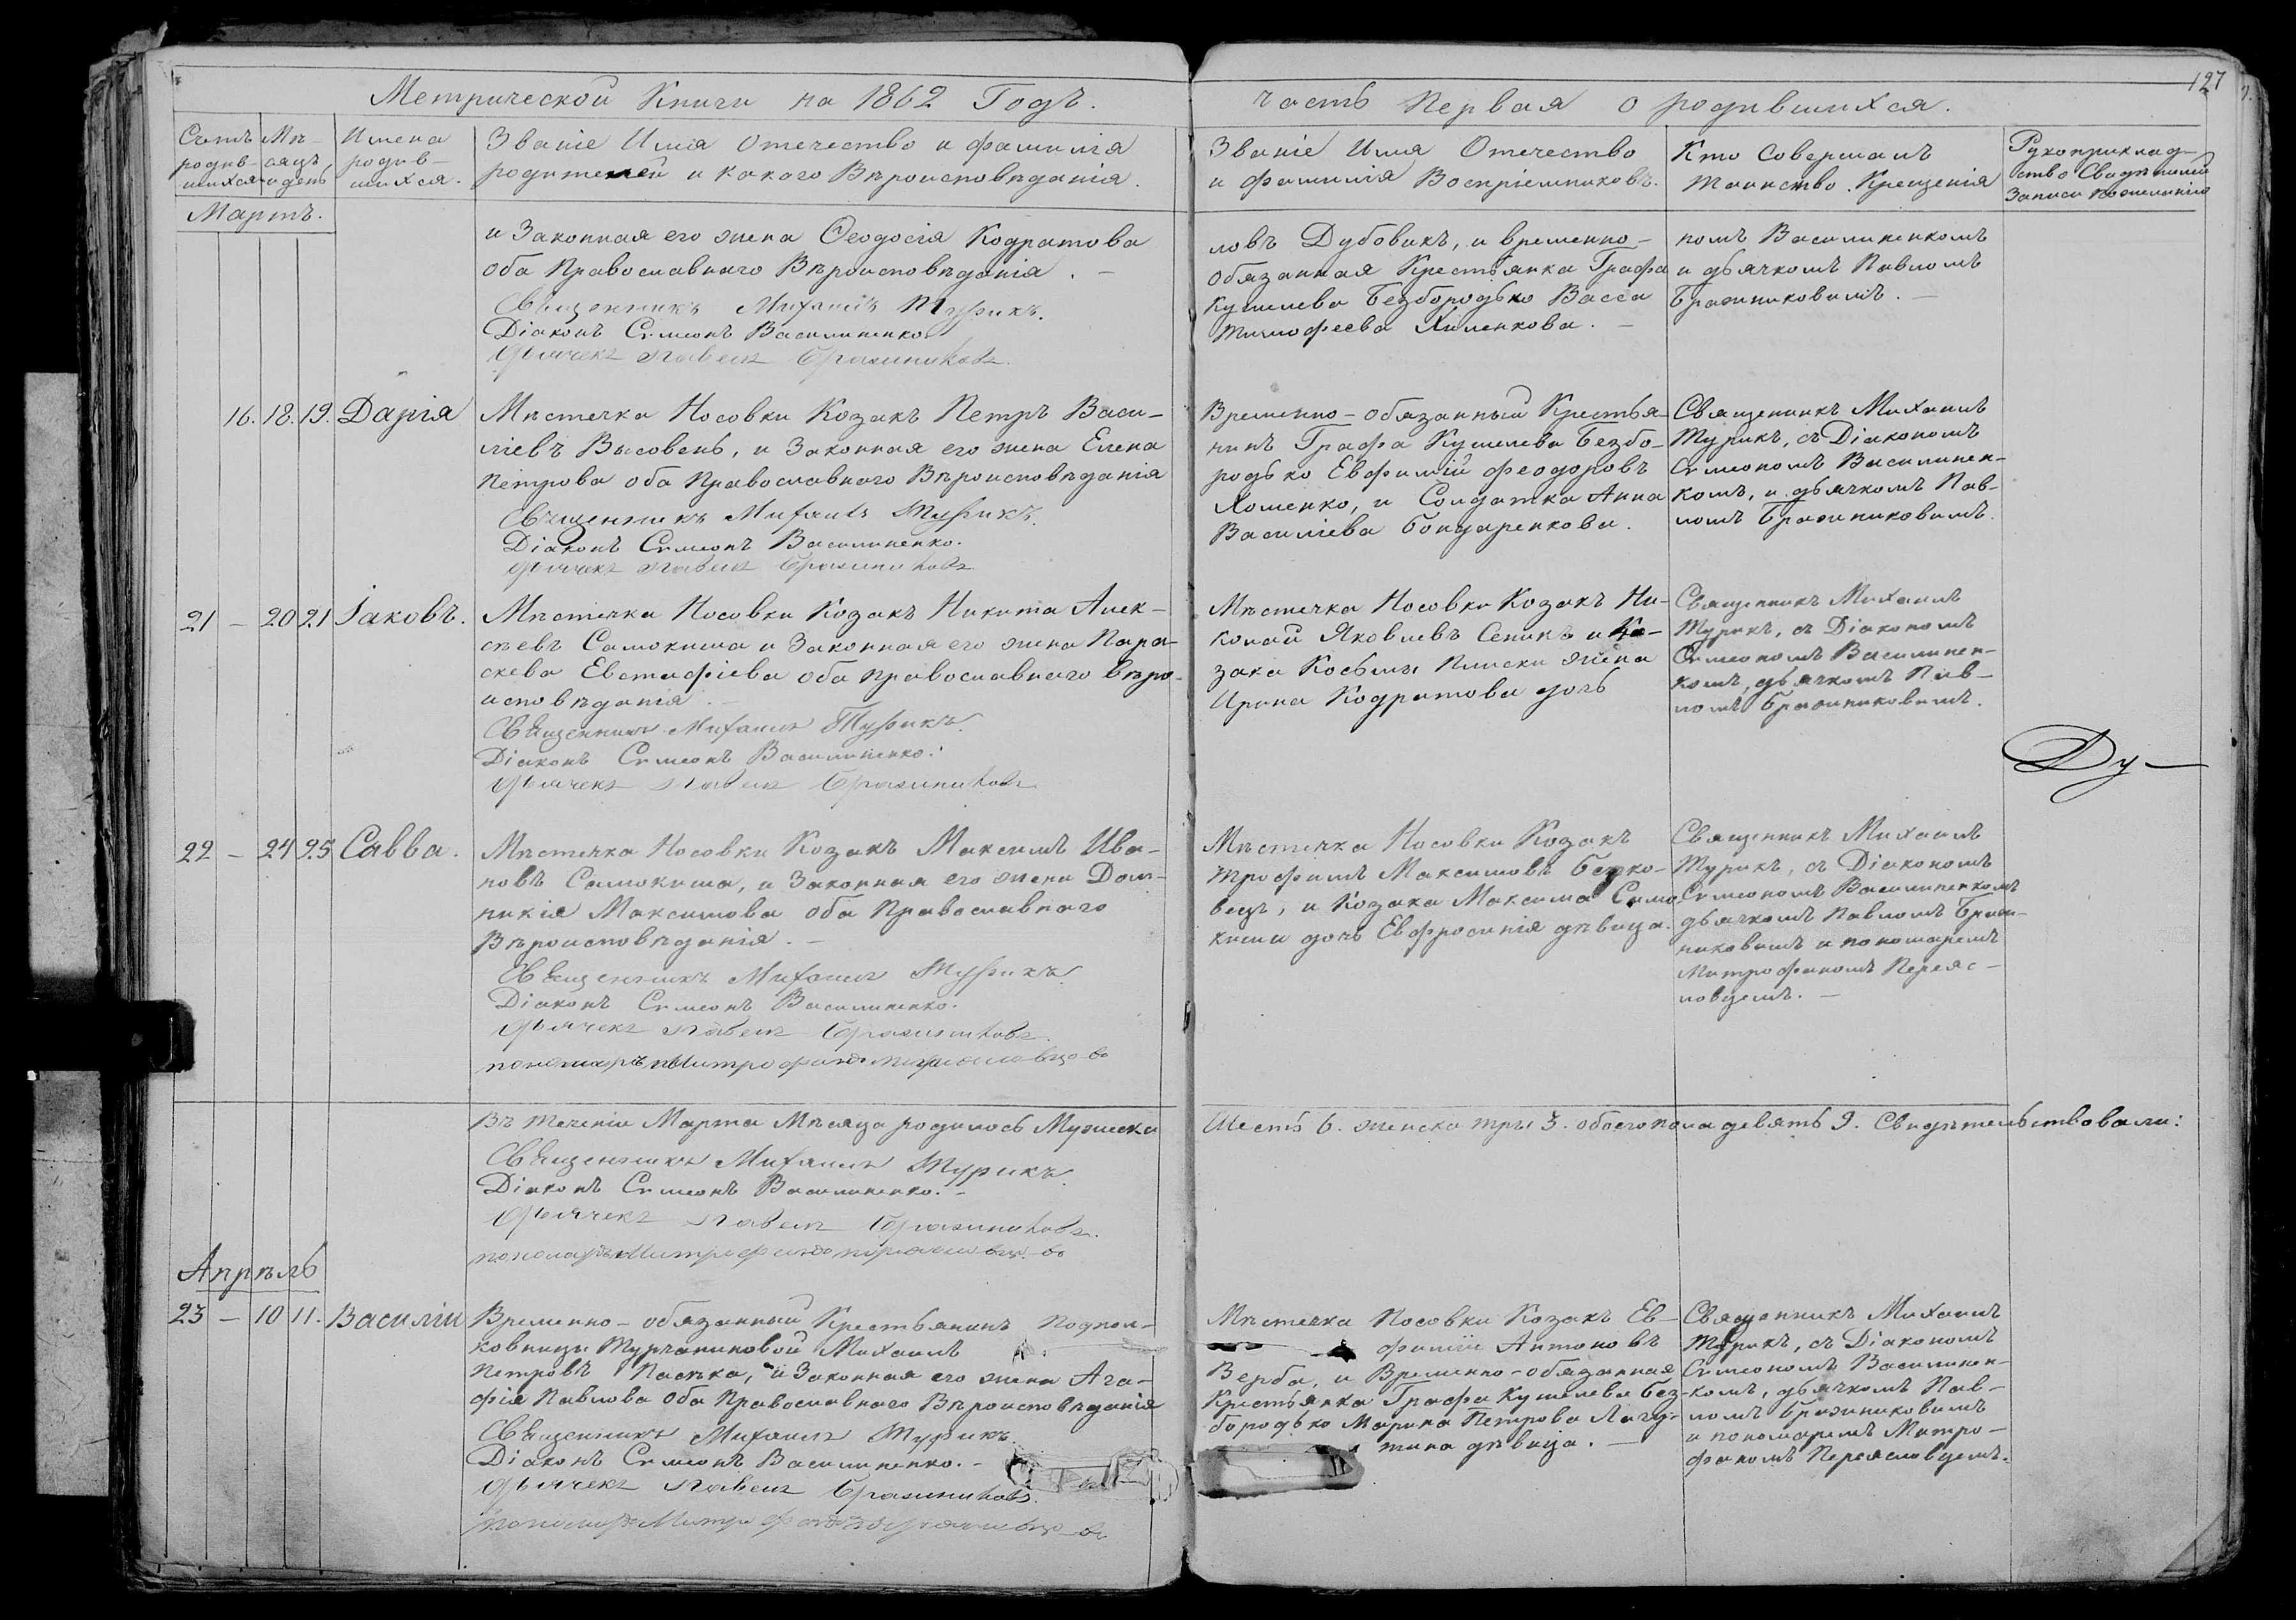 127
Метрической Книги на 1862 Годъ.
часть Первая о родившихся.
Счетъ родив-шихся
Мѣ-сяцъ и день
Имена родив-шихся.
Званіе Имя Отечество и фамилія
родителей и какого Вѣроисповѣданія.
Званіе Имя Отечество
и фамилія Воспріемниковъ.
Кто Совершалъ
таинство Крещенія
Рукоприклад-
ство Свидѣтелей
Записи по желанію
Мартъ.
и Законная его жена Ѳеодосія Кодратова
оба Православнаго Вѣроисповѣданія. –
Священникъ Михаилъ Турикъ.
Діаконъ Симеонъ Василиненко
Дьячекъ Павелъ Бражниковъ.
ловъ Дубовикъ, и временно-
обязанная Крестьянка Графа
Кушелева Безбородько Васса
Тимофеева Хименкова. –
номъ Василиненкомъ
и дьячкомъ Павломъ
Бражниковымъ. –
16. 18. 19. Дарія
Мѣстечка Носовки Козакъ Петръ Васи-
ліевъ Высовень, и Законная его жена Елена
Петрова оба Православнаго Вѣроисповѣданія
Священникъ Михаилъ Турикъ.
Діаконъ Симеонъ Василиненко.
Дьячекъ Павелъ Бражниковъ
Временно-обязанный Крестья-
нинъ Графа Кушелева Безбо-
родько Евфимій Феодоровъ
Хоменко, и Солдатка Анна
Василіева Бондаренкова.
Священникъ Михаилъ
Турикъ, съ Діакономъ
Симеономъ Василинен-
комъ, и дьячкомъ Пав-
ломъ Бражниковымъ.
21 – 20 21 Іаковъ.
Мѣстечка Носовки Козакъ Никита Алек-
сѣевъ Самокиша и Законная его жена Пара-
скева Евстафіева оба православнаго вѣро-
исповѣданія. –
Священникъ Михаилъ Турикъ.
Діаконъ Симеонъ Василиненко.
Дьячекъ Павелъ Бражниковъ
Мѣстечка Носовки Козакъ Ни-
колай Яковлевъ Сеникъ и Ко-
зака Косьмы Плиски жена
Ирина Кодратова дочь
Священникъ Михаилъ
Турикъ, съ Діакономъ
Симеономъ Василинен-
комъ, дьячкомъ Пав-
ломъ Бражниковымъ.
Ду–
22 – 24 25 Савва.
Мѣстечка Носовки Козакъ Максимъ Ива-
новъ Самокиша, и Законная его жена Дом-
никія Максимова оба Православнаго
Вѣроисповѣданія. –
Священникъ Михаилъ Турикъ.
Діаконъ Симеонъ Василиненко.
Дьячекъ Павелъ Бражниковъ.
пономаръ Митрофанъ
Мѣстечка Носовки Козакъ
Трофимъ Максимовъ
вецъ, и Козака Максима Само
киши дочь Евфросинія дѣвица.
Священникъ Михаилъ
Турикъ, съ Діакономъ
Симеономъ Василиненкомъ
дьячкомъ Павломъ Браж-
никовымъ и пономаремъ
Митрофаномъ Переяс-
ловцемъ. –
Въ теченіи Марта Мѣсяца родилось Мужеска
Шесть 6. женска три 3. обоего пола девять 9. Свидѣтельствовали:
Священникъ Михаилъ Турикъ.
Діаконъ Симеонъ Василиненко. –
Дьячекъ Павелъ Бражниковъ.
пономаръ Митрофанъ
Апрѣль
23 – 10 11. Василій
Временно-обязанный Крестьянинъ Подпол-
ковницы Турчаниновой Михаилъ
Петровъ Пасѣка, и Законная его жена Ага-
фія Павлова Оба Православнаго Вѣроисповѣданія
Священникъ Михаилъ Турикъ.
Діаконъ Симеонъ Василиненко. –
Дьячекъ Павелъ Бражниковъ.
Пономаръ Митрофанъ
Мѣстечка Носовки Козакъ Ев-
фимій Антоновъ
Верба, и Временно-обязанная
Крестьянка Графа Кушелева Без-
бородько Марина Петрова
тина дѣвица. –
Священникъ Михаилъ
Турикъ, съ Діакономъ
Симеономъ Василинен-
комъ, дьячкомъ Пав-
ломъ Бражниковымъ
и пономаремъ Митро-
фаномъ Переясловцемъ.